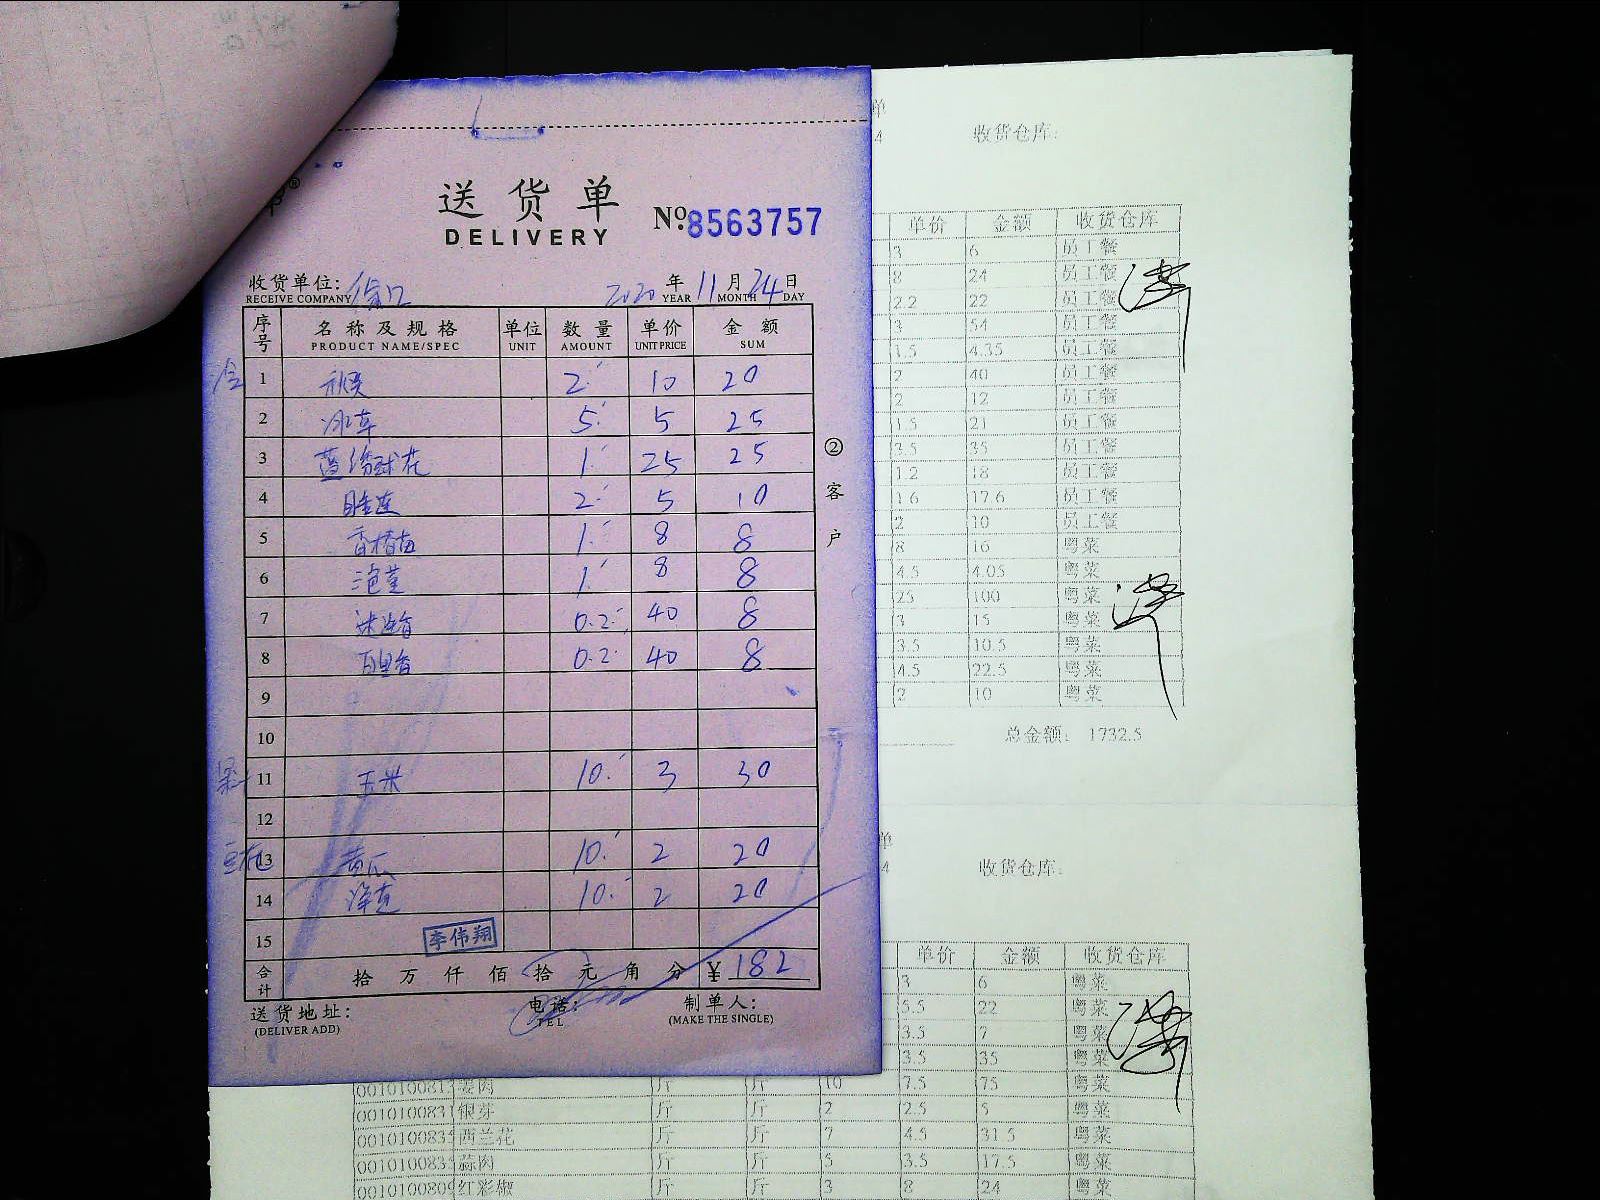 送货单
DELIVERY
№:8563757
收货单位:
RECEIVE COMPANY
2020 年 YEAR 11 月 MONTH 24 日 DAY
序号 名称及规格 PRODUCT NAME/SPEC 单位 UNIT 数量 AMOUNT 单价 UNIT PRICE 金额 SUM
1 2 10 20
2 冰草 5 5 25
3 蓝绣球花 1 25 25
4 睡莲 2 5 10
5 香椿苗 1 8 8
6 1 8 8
7 迷迭香 0.2 40 8
8 百里香 0.2 40 8
9
10
11 玉米 10 3 30
12
豆花
13 黄瓜 10 2 20
14 10 2 20
15 李伟翔
合计 拾 万 仟 佰 拾 元 角 分 ¥ 182
送货地址:
(DELIVER ADD)
电话:
TEL
制单人:
(MAKE THE SINGLE)
②客户
单
4 收货仓库:
单价 金额 收货仓库
3 6 员工餐
8 24 员工餐
2.2 22 员工餐
3 54 员工餐
1.5 4.35 员工餐
2 40 员工餐
2 12 员工餐
1.5 21 员工餐
3.5 35 员工餐
1.2 18 员工餐
1.6 17.6 员工餐
2 10 员工餐
8 16 粤菜
4.5 4.05 粤菜
25 100 粤菜
3 15 粤菜
3.5 10.5 粤菜
4.5 22.5 粤菜
2 10 粤菜
总金额: 1732.5
单
4 收货仓库:
单价 金额 收货仓库
3 6 粤菜
5.5 22 粤菜
3.5 7 粤菜
3.5 35 粤菜
姜肉 斤 斤 10 7.5 75 粤菜
银芽 斤 斤 2 2.5 5 粤菜
西兰花 斤 斤 7 4.5 31.5 粤菜
蒜肉 斤 斤 5 3.5 17.5 粤菜
红彩椒 斤 斤 3 8 24 粤菜